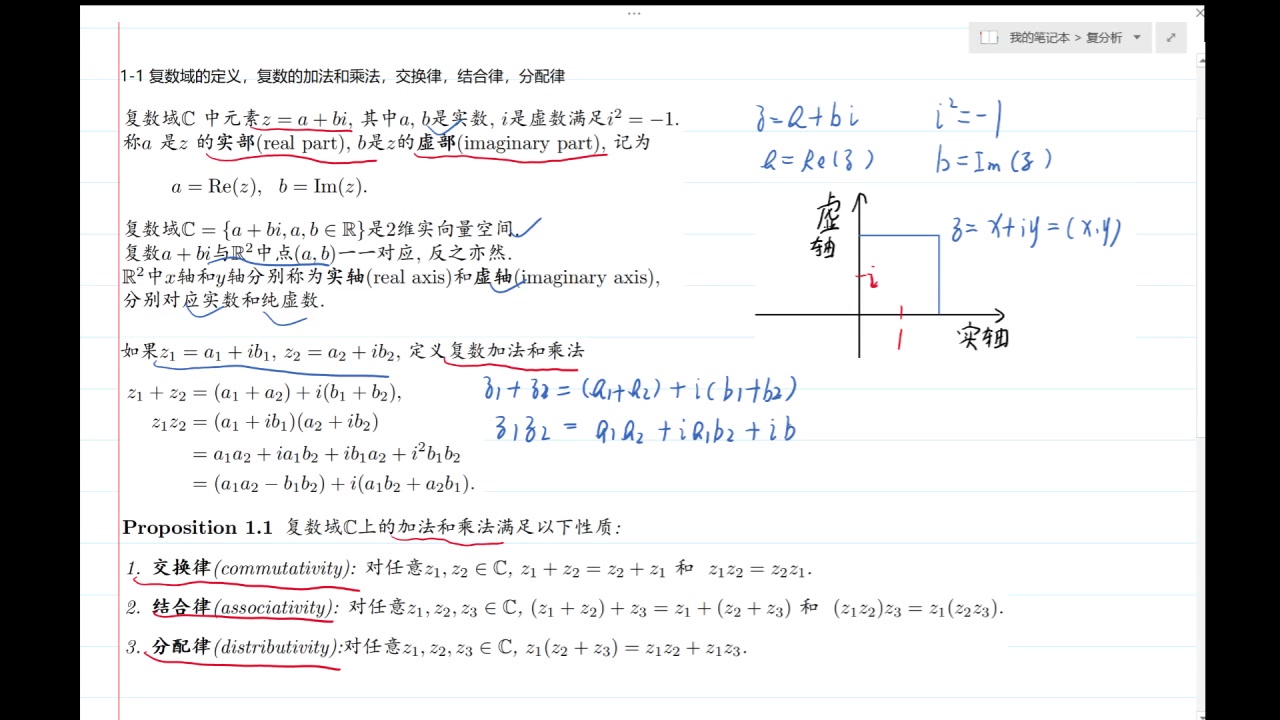 我的笔记本 > 复分析
1-1 复数域的定义，复数的加法和乘法，交换律，结合律，分配律
复数域ℂ 中元素z = a + bi, 其中a, b是实数, i是虚数满足i² = −1.
称a 是z 的实部(real part), b是z的虚部(imaginary part), 记为
a = Re(z), b = Im(z).
复数域ℂ = {a + bi, a, b ∈ ℝ}是2维实向量空间.
复数a + bi与ℝ²中点(a, b)一一对应, 反之亦然.
ℝ²中x轴和y轴分别称为实轴(real axis)和虚轴(imaginary axis),
分别对应实数和纯虚数.
如果z₁ = a₁ + ib₁, z₂ = a₂ + ib₂, 定义复数加法和乘法
z₁ + z₂ = (a₁ + a₂) + i(b₁ + b₂),
z₁z₂ = (a₁ + ib₁)(a₂ + ib₂)
= a₁a₂ + ia₁b₂ + ib₁a₂ + i²b₁b₂
= (a₁a₂ − b₁b₂) + i(a₁b₂ + a₂b₁).
z = a + bi i² = −1
a = Re(z) b = Im(z)
虚轴
z = x + iy = (x, y)
i
1
实轴
z₁ + z₂ = (a₁ + a₂) + i(b₁ + b₂)
z₁z₂ = a₁a₂ + ia₁b₂ + ib
Proposition 1.1 复数域ℂ上的加法和乘法满足以下性质:
1. 交换律(commutativity): 对任意z₁, z₂ ∈ ℂ, z₁ + z₂ = z₂ + z₁ 和 z₁z₂ = z₂z₁.
2. 结合律(associativity): 对任意z₁, z₂, z₃ ∈ ℂ, (z₁ + z₂) + z₃ = z₁ + (z₂ + z₃) 和 (z₁z₂)z₃ = z₁(z₂z₃).
3. 分配律(distributivity):对任意z₁, z₂, z₃ ∈ ℂ, z₁(z₂ + z₃) = z₁z₂ + z₁z₃.